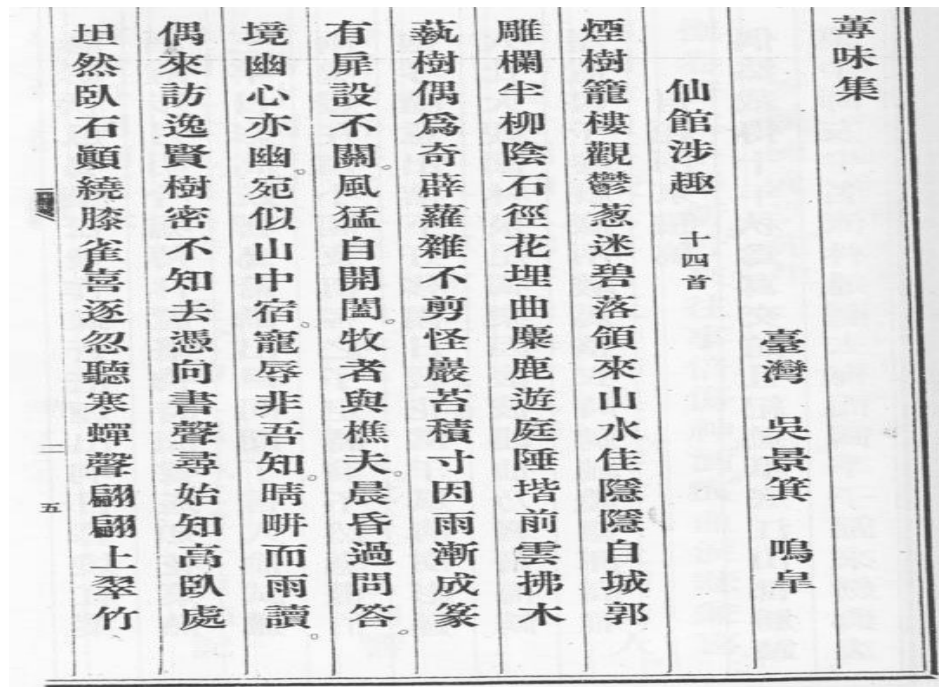 蓴味集
臺灣 吳景箕 鳴皐
仙館涉趣 十四首
煙樹籠樓觀鬱葱迷碧落領來山水佳隱隱自城郭
雕欄半柳陰石徑花埋曲麋鹿遊庭陲堦前雲拂木
蓺樹偶爲奇薜蘿雜不剪怪巖苔積寸因雨漸成篆
有扉設不關。風猛自開闔。牧者與樵夫。晨昏過問答。
境幽心亦幽。宛似山中宿。寵辱非吾知。晴畊而雨讀。
偶來訪逸賢樹密不知去憑向書聲尋始知高臥處
坦然臥石顚繞膝雀喜逐忽聽寒蟬聲翩翩上翠竹
五